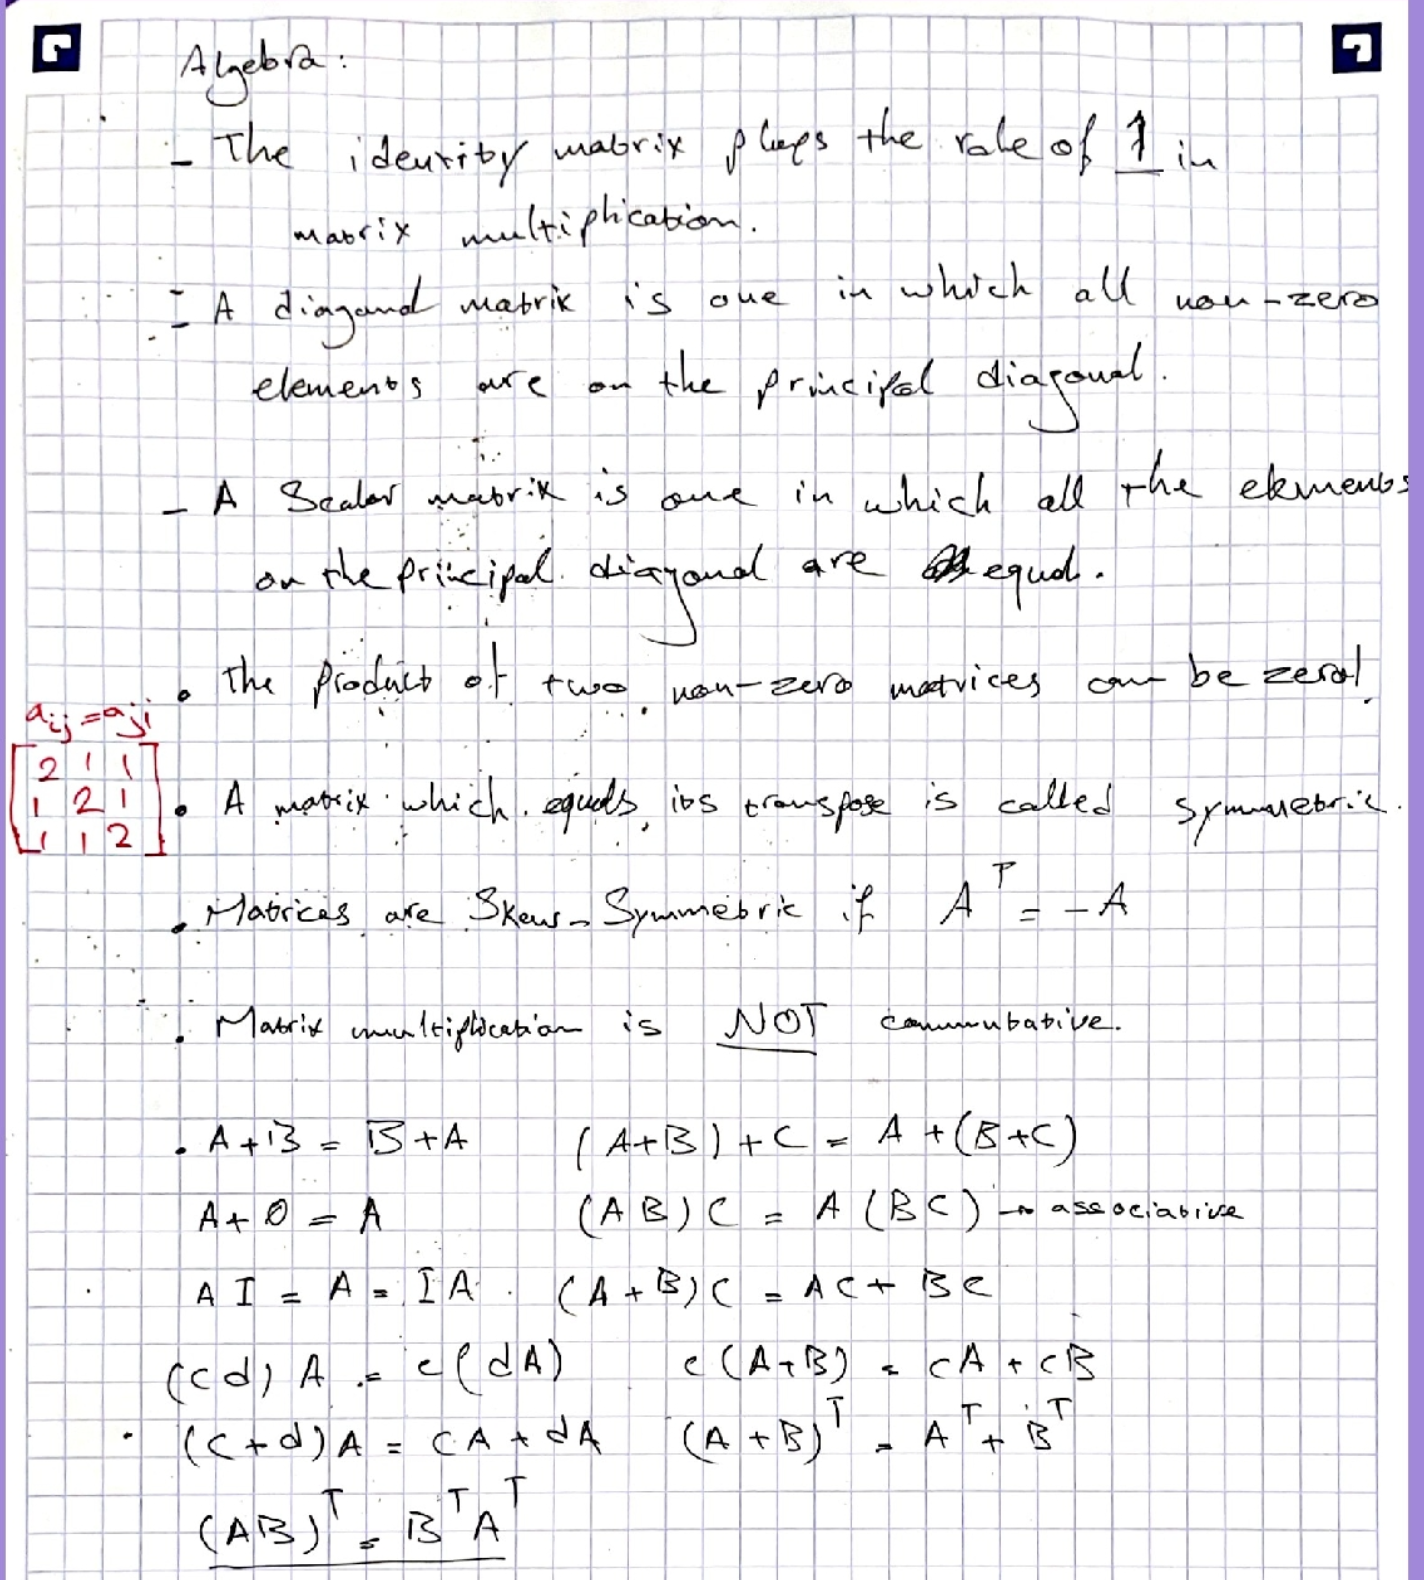 Algebra:
- The identity matrix plays the role of 1 in
matrix multiplication.
- A diagonal matrix is one in which all non-zero
elements are on the principal diagonal.
- A Scalar matrix is one in which all the elements
on the principal diagonal are equal.
• The product of two non-zero matrices can be zero!
aij = aji
[2 1 1
1 2 1
1 1 2]
• A matrix which equals its transpose is called symmetric.
• Matrices are Skew-Symmetric if Aᵀ = -A
• Matrix multiplication is NOT commutative.
• A+B = B+A (A+B)+C = A+(B+C)
A+0 = A (AB)C = A(BC) → associative
AI = A = IA (A+B)C = AC+BC
(cd)A = c(dA) c(A+B) = cA+cB
• (c+d)A = cA+dA (A+B)ᵀ = Aᵀ+Bᵀ
(AB)ᵀ = BᵀAᵀ